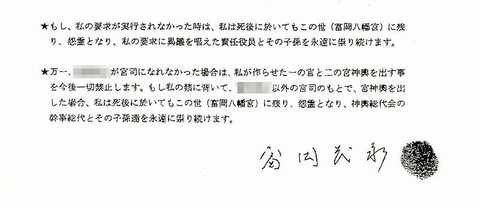 ★もし、私の要求が実行されなかった時は、私は死後に於いてもこの世（富岡八幡宮）に残
り、怨霊となり、私の要求に異議を唱えた責任役員とその子孫を永遠に祟り続けます。
★万一、
が宮司になれなかった場合は、私が作らせた一の宮と二の宮神輿を出す事
を今後一切禁止します。もし私の禁に背いて、
以外の宮司のもとで、宮神輿を出
した場合、私は死後に於いてもこの世（富岡八幡宮）に残り、怨霊となり、神輿総代会の
幹事総代とその子孫達を永遠に祟り続けます。
富岡茂永